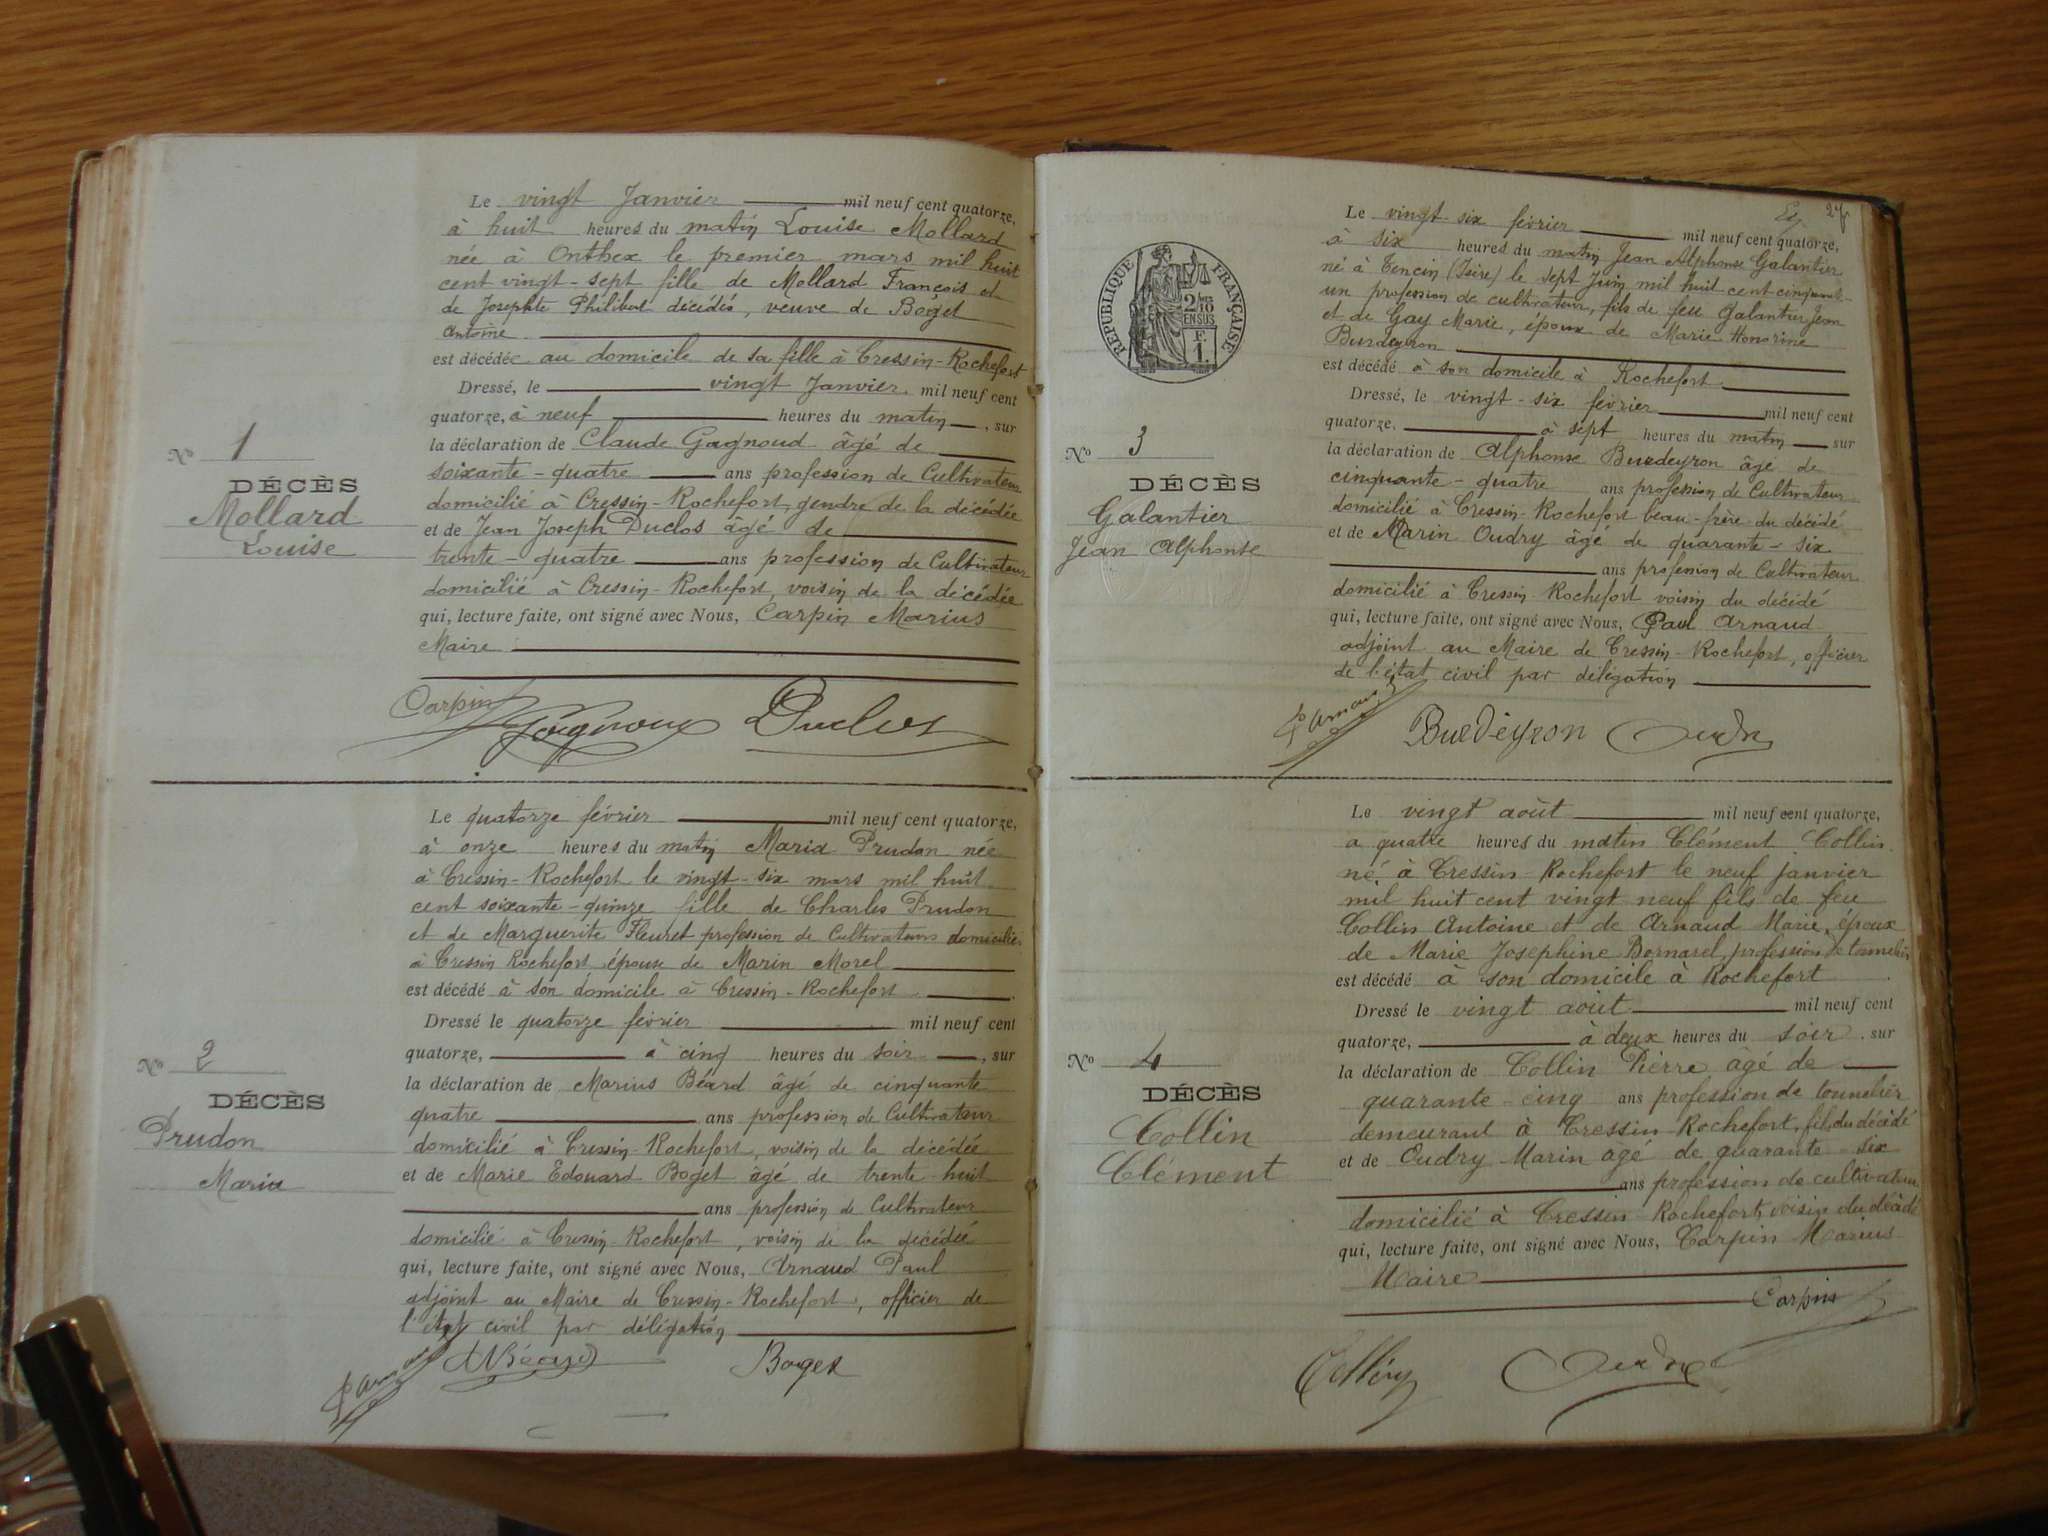 Le vingt Janvier mil neuf cent quatorze,
à huit heures du matin Louise Mollard
née à Onthex le premier mars mil huit
cent vingt-sept fille de Mollard François et
de Josephte Philibert décédés, veuve de Boget
Antoine
est décédée au domicile de sa fille à Cressin-Rochefort
Dressé, le vingt Janvier mil neuf cent
quatorze, à neuf heures du matin, sur
la déclaration de Claude Gagnoud âgé de
soixante-quatre ans profession de Cultivateur
domicilié à Cressin-Rochefort, gendre de la décédée
et de Jean Joseph Duclos âgé de
trente-quatre ans profession de Cultivateur
domicilié à Cressin-Rochefort, voisin de la décédée
qui, lecture faite, ont signé avec Nous, Carpin Marius
Maire
Nº 1
DÉCÈS
Mollard
Louise
Carpin Gagnoud Duclos
Le quatorze février mil neuf cent quatorze,
à onze heures du matin Maria Prudon née
à Cressin-Rochefort le vingt-six mars mil huit
cent soixante-quinze fille de Charles Prudon
et de Marguerite Fleuret profession de Cultivateurs domiciliés
à Cressin Rochefort, épouse de Marin Morel
est décédé à son domicile à Cressin-Rochefort
Dressé le quatorze février mil neuf cent
quatorze, à cinq heures du soir, sur
la déclaration de Marius Béard âgé de cinquante
quatre ans profession de Cultivateur
domicilié à Cressin-Rochefort, voisin de la décédée
et de Marie Edouard Boget âgé de trente-huit
ans profession de Cultivateur
domicilié à Cressin-Rochefort, voisin de la décédée
qui, lecture faite, ont signé avec Nous, Arnaud Paul
adjoint au Maire de Cressin-Rochefort, officier de
l'état civil par délégation
Nº 2
DÉCÈS
Prudon
Maria
P Arnaud Béard Boget
27
RÉPUBLIQUE FRANÇAISE
2/10
EN SUS
F.
1.
Le vingt-six février mil neuf cent quatorze,
à six heures du matin Jean Alphonse Galantier
né à Tencin (Isère) le sept Juin mil huit cent cinquante-
un profession de cultivateur, fils de feu Galantier Jean
et de Gay Marie, époux de Marie Honorine
Burdeyron
est décédé à son domicile à Rochefort
Dressé, le vingt-six février mil neuf cent
quatorze, à sept heures du matin sur
la déclaration de Alphonse Burdeyron âgé de
cinquante-quatre ans profession de Cultivateur
domicilié à Cressin-Rochefort beau-frère du décédé
et de Marin Oudry âgé de quarante-six
ans profession de Cultivateur
domicilié à Cressin-Rochefort voisin du décédé
qui, lecture faite, ont signé avec Nous, Paul Arnaud
adjoint au Maire de Cressin-Rochefort, officier
de l'état civil par délégation
Nº 3
DÉCÈS
Galantier
Jean Alphonse
P Arnaud Burdeyron Oudry
Le vingt août mil neuf cent quatorze,
a quatre heures du matin Clément Collin
né à Cressin-Rochefort le neuf janvier
mil huit cent vingt neuf fils de feu
Collin Antoine et de Arnaud Marie, époux
de Marie Josephine Bornarel, profession de tonnelier
est décédé à son domicile à Rochefort
Dressé le vingt août mil neuf cent
quatorze, à deux heures du soir, sur
la déclaration de Collin Pierre âgé de
quarante-cinq ans profession de tonnelier
demeurant à Cressin Rochefort, fils du décédé
et de Oudry Marin âgé de quarante six
ans profession de cultivateur
domicilié à Cressin Rochefort, voisin du décédé
qui, lecture faite, ont signé avec Nous, Carpin Marius
Maire
Nº 4
DÉCÈS
Collin
Clément
Carpin
Oudry